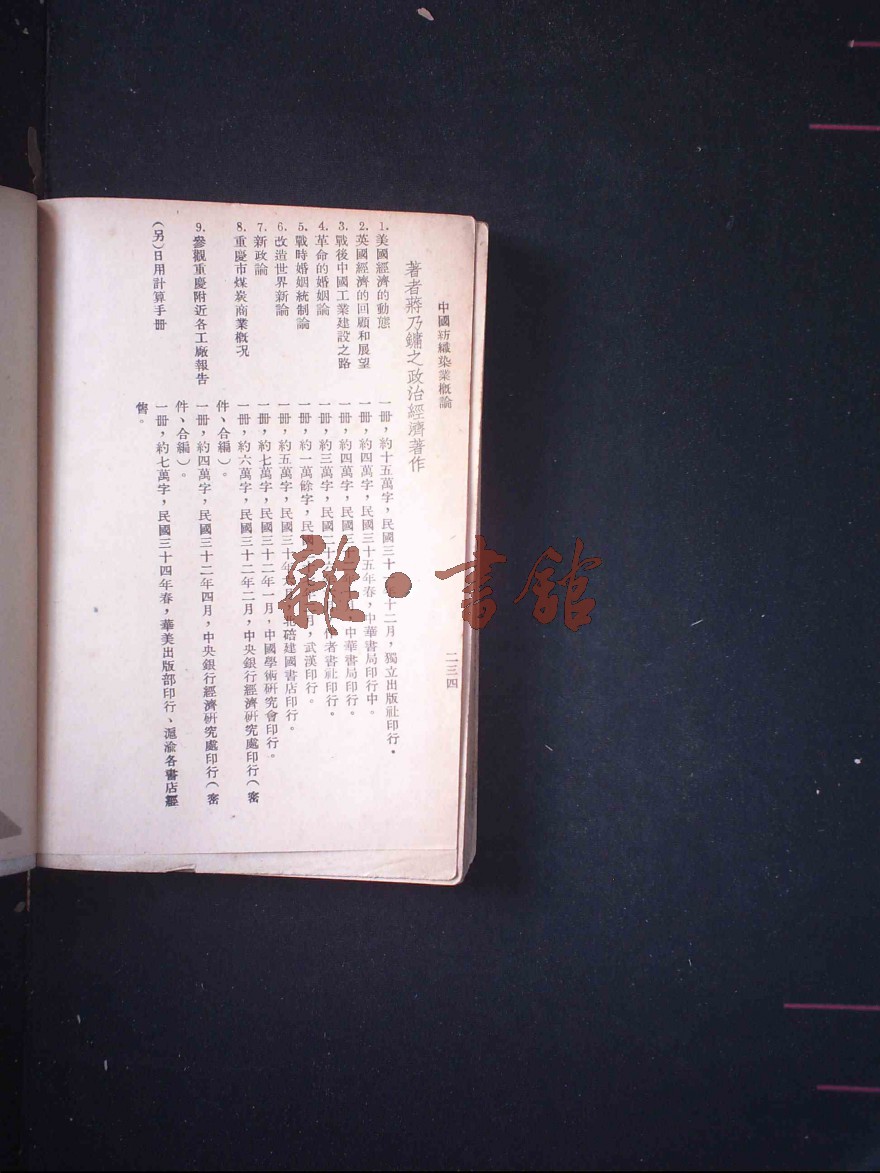 中國紡織染業概論
二三四
著者蔣乃鏞之政治經濟著作
1. 美國經濟的動態 一冊，約十五萬字，民國三十 十二月，獨立出版社印行。
2. 英國經濟的回顧和展望 一冊，約四萬字，民國三十五年春，中華書局印行中。
3. 戰後中國工業建設之路 一冊，約四萬字，民國三 中華書局印行。
4. 革命的婚姻論 一冊，約三萬字，民國 十 作者書社印行。
5. 戰時婚姻統制論 一冊，約一萬餘字，民國 月，武漢印行。
6. 改造世界新論 一冊，約五萬字，民國三十年 月 北碚建國書店印行。
7. 新政論 一冊，約七萬字，民國三十二年一月，中國學術研究會印行。
8. 重慶市煤炭商業概況 一冊，約六萬字，民國三十二年二月，中央銀行經濟研究處印行（密
件、合編）。
9. 參觀重慶附近各工廠報告 一冊，約四萬字，民國三十二年四月，中央銀行經濟研究處印行（密
件、合編）。
（另）日用計算手冊 一冊，約七萬字，民國三十四年春，華美出版部印行、滬渝各書店經
售。
雜·書館